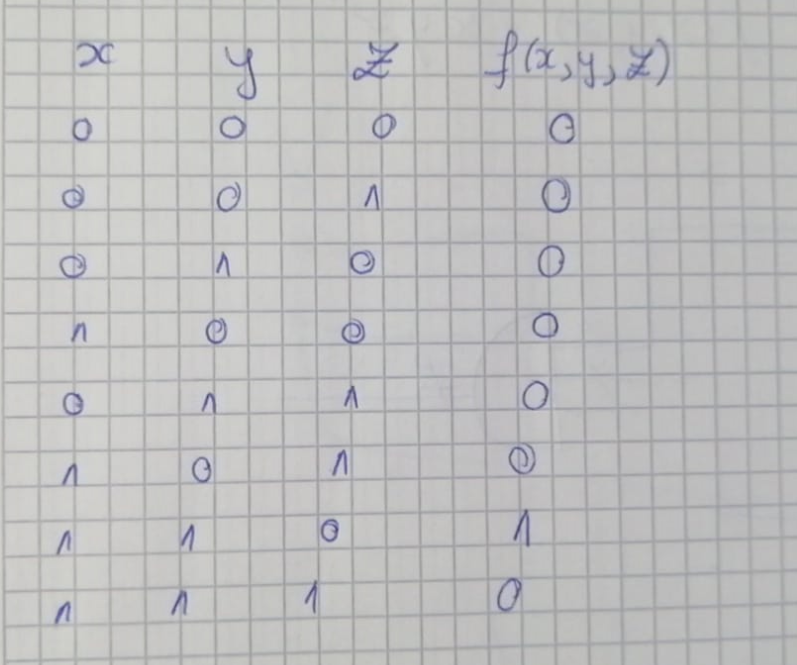 x y z f(x,y,z)
0 0 0 0
0 0 1 0
0 1 0 0
1 0 0 0
0 1 1 0
1 0 1 0
1 1 0 1
1 1 1 0